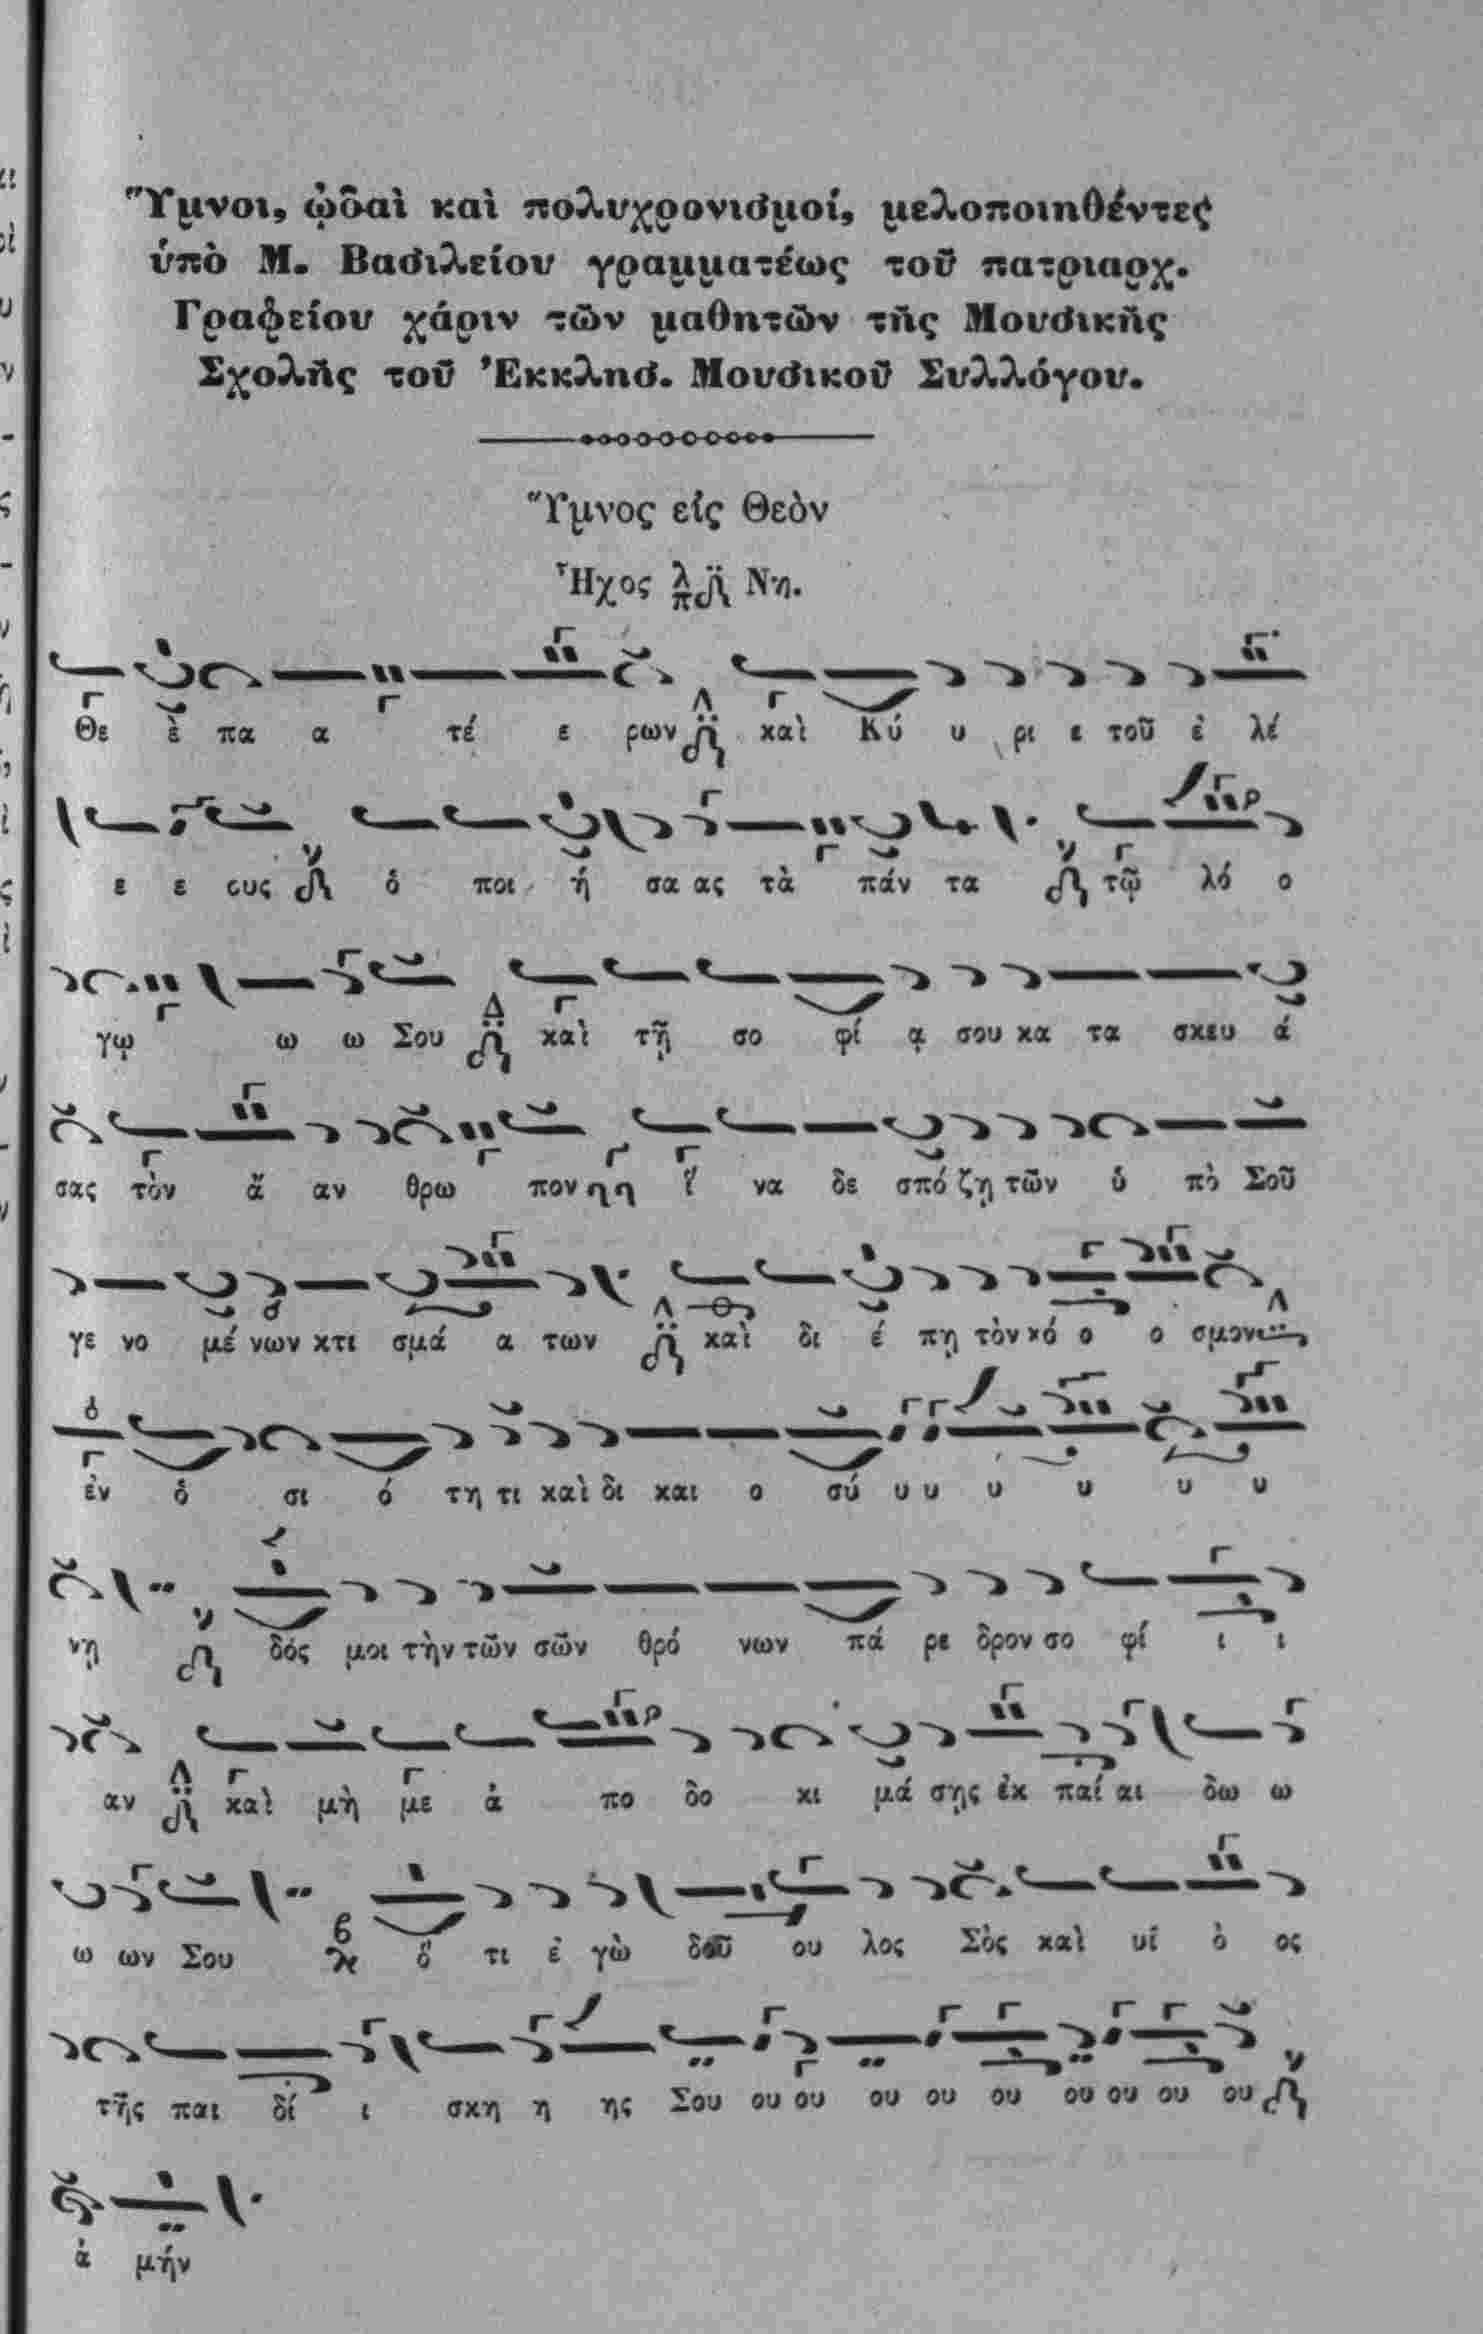 Ὕμνοι, ᾠδαὶ καὶ πολυχρονισμοί, μελοποιηθέντες
ὑπὸ Μ. Βασιλείου γραμματέως τοῦ πατριαρχ.
Γραφείου χάριν τῶν μαθητῶν τῆς Μουσικῆς
Σχολῆς τοῦ Ἐκκλησ. Μουσικοῦ Συλλόγου.
Ὕμνος εἰς Θεὸν
Ἦχος λπ Νη.
Θε ὲ πα α τέ ε ρων καὶ Κύ υ ρι ε τοῦ ἐ λέ
ε ε ους ὁ ποι ή σα ας τὰ πάν τα τῷ λό ο
γῳ ω ω Σου καὶ τῇ σο φί ᾳ σου κα τα σκευ ά
σας τὸν ἄ αν θρω πον ἵ να δε σπό ζῃ τῶν ὑ πὸ Σοῦ
γε νο μέ νων κτι σμά α των καὶ δι έ πῃ τὸν κό ο ο σμον
ἐν ὁ σι ό τη τι καὶ δι και ο σύ υ υ υ υ υ υ
νῃ δός μοι τὴν τῶν σῶν θρό νων πά ρε δρον σο φί ι ι
αν καὶ μὴ με ἀ πο δο κι μά σῃς ἐκ παί αι δω ω
ω ων Σου ὅ τι ἐ γὼ δοῦ ου λος Σὸς καὶ υἱ ὸ ος
τῆς παι δί ι σκη η ης Σου ου ου ου ου ου ου ου ου ου
ἀ μήν